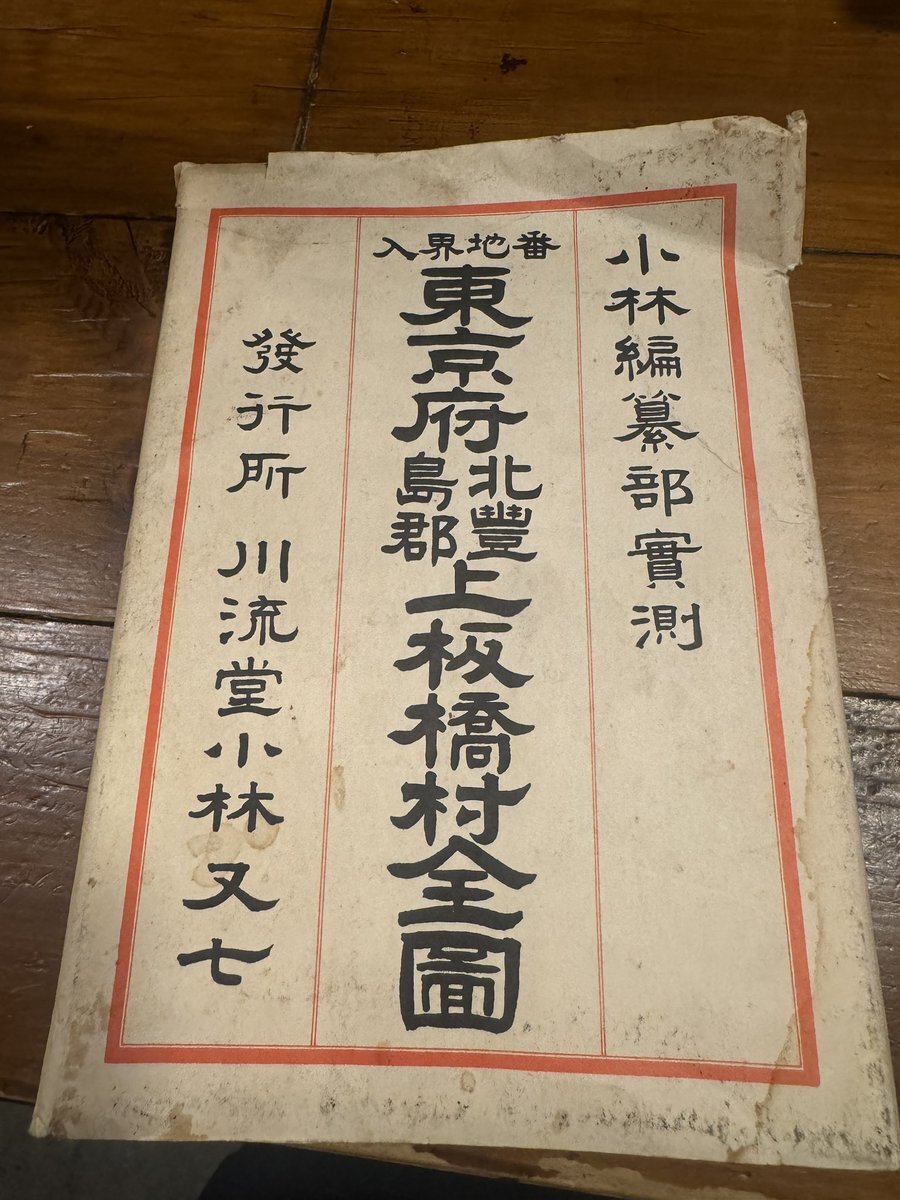 小林編纂部實測
番地界入
東京府北豐島郡上板橋村全圖
發行所 川流堂小林又七